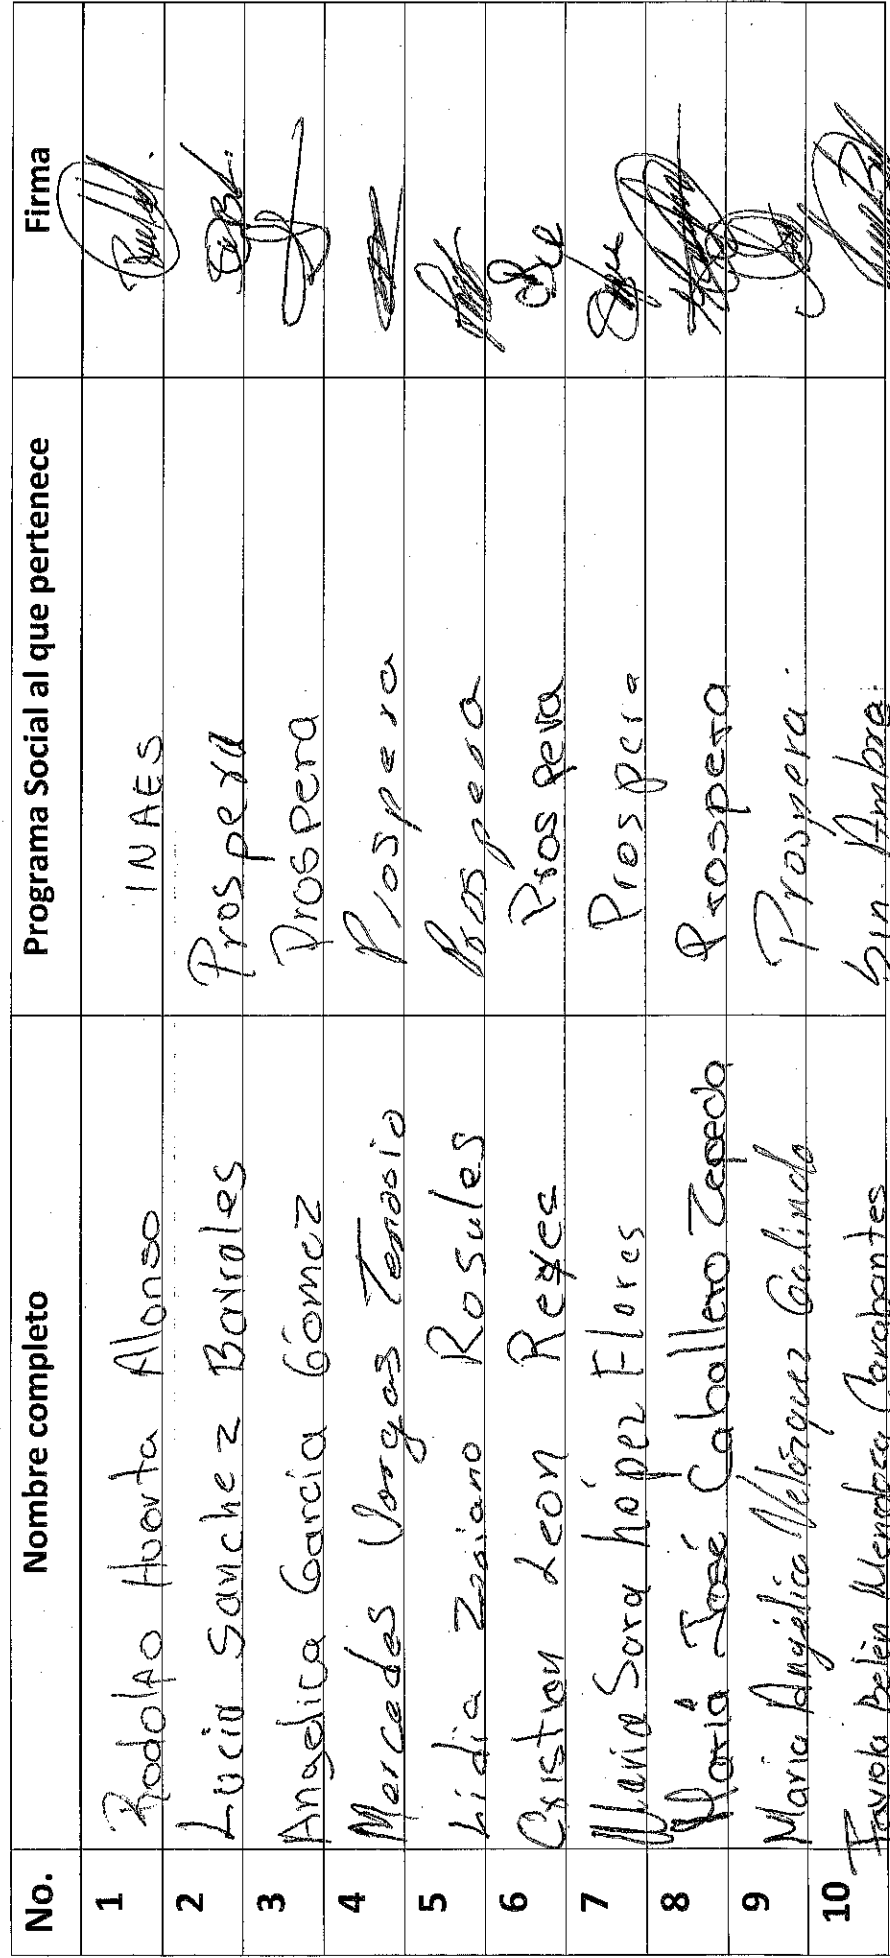 No. Nombre completo Programa Social al que pertenece Firma
1 Rodolfo Huerta Alonso INAES
2 Lucia Sanchez Barrales Prospera
3 Angelica García Gómez Prospera
4 Mercedes Vargas Prospera
5 Lidia Rosales Prospera
6 Cristian Leon Reyes Prospera
7 Maria Sara López Flores Prospera
8 María José Caballero Zepeda Prospera
9 Maria Angélica Velázquez Galindo Prospera.
10 Belén Mendoza Carabantes Sin